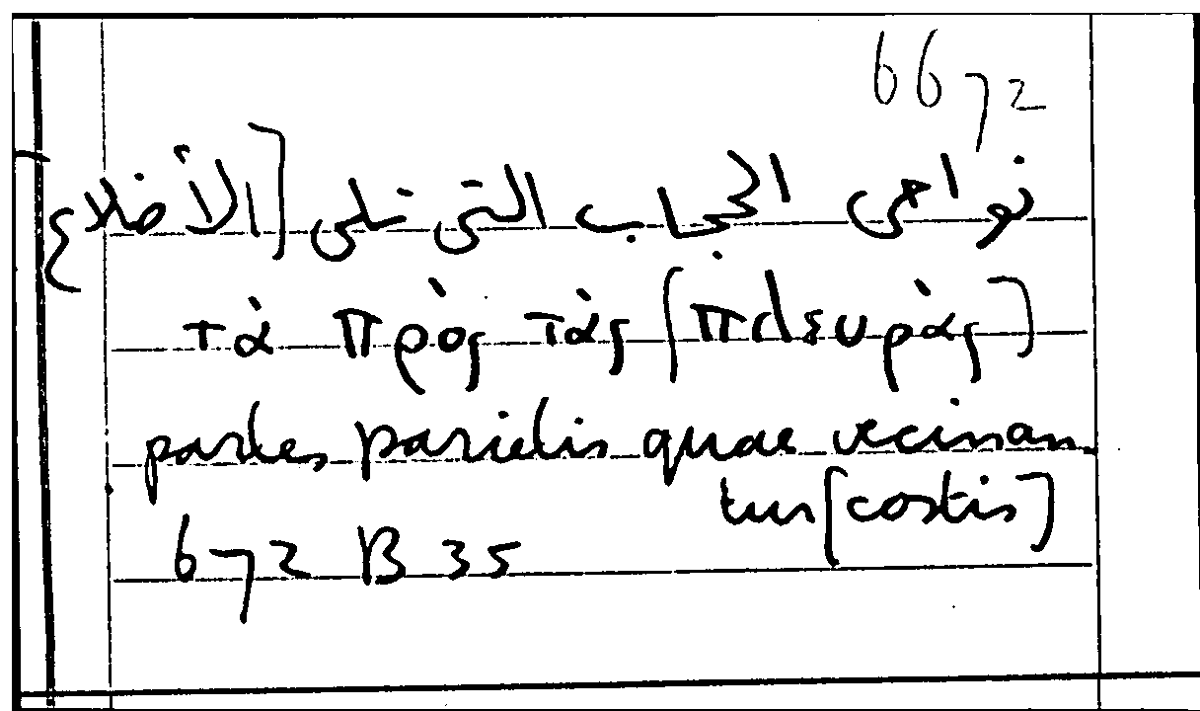 6672
نواحى الحجاب التى تلى [الأضلاع]
τὰ πρὸς τὰς [πλευράς]
partes parietis quae vecinan
tur [costis]
672 B 35